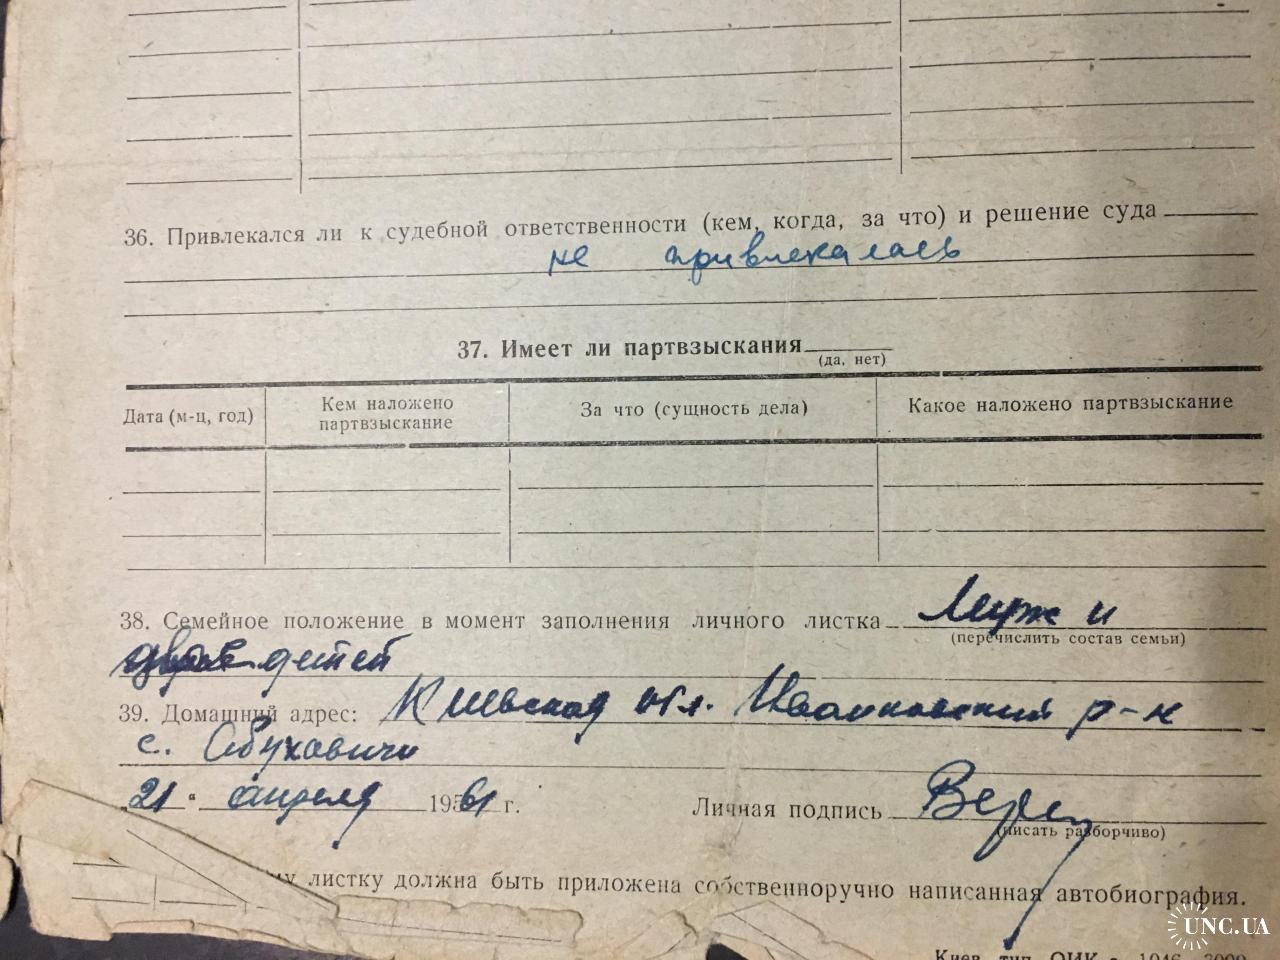 36. Привлекался ли к судебной ответственности (кем, когда, за что) и решение суда
не привлекалась
37. Имеет ли партвзыскания
(да, нет)
Дата (м-ц, год) Кем наложено партвзыскание За что (сущность дела) Какое наложено партвзыскание
38. Семейное положение в момент заполнения личного листка Муж и
(перечислить состав семьи)
двое детей
39. Домашний адрес: Киевская обл. Иванковский р-н
с. Обуховичи
„21“ апреля 1961 г. Личная подпись
(писать разборчиво)
листку должна быть приложена собственноручно написанная автобиография.
Киев, тип. ОИК
UNC.UA